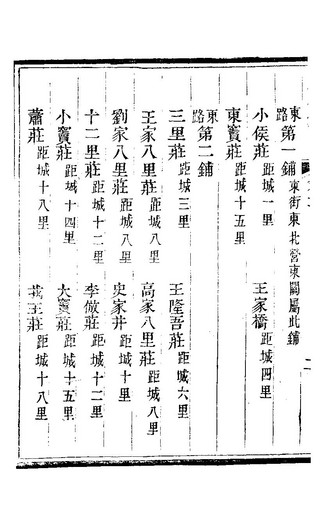 東路第一鋪東街東北營東關屬此鋪
小侯莊距城一里　王家橋距城四里
東竇莊距城十五里
東路第二鋪
三里莊距城三里　王隆吾莊距城六里
王家八里莊距城八里　高家八里莊距城八里
劉家八里莊距城八里　史家井距城十里
十二里莊距城十二里　李倣莊距城十二里
小竇莊距城十四里　大竇莊距城十五里
蕭莊距城十八里　莊距城十八里